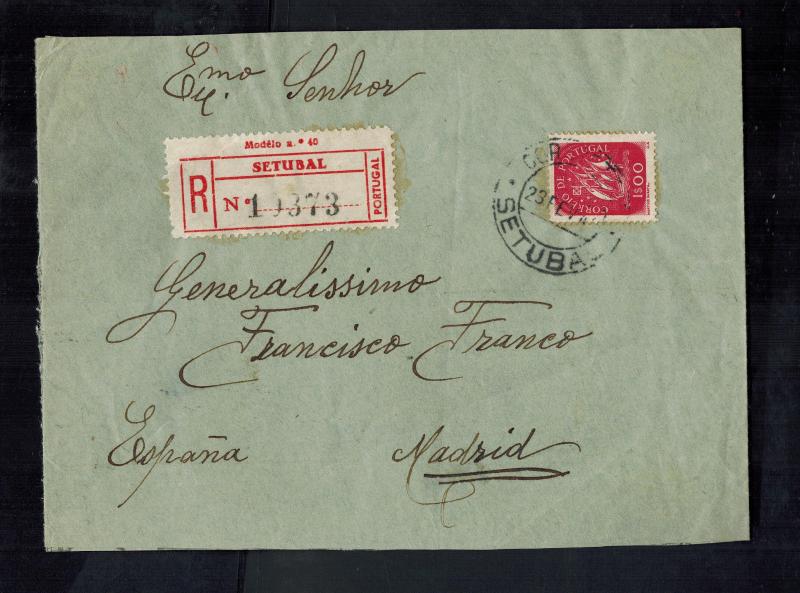 Exmo Senhor
Modêlo n.º 40
SETUBAL
R
Nº 19373
PORTUGAL
CORREIO DE PORTUGAL
1$00
23 FEV
SETUBAL
Generalissimo
Francisco Franco
España Madrid